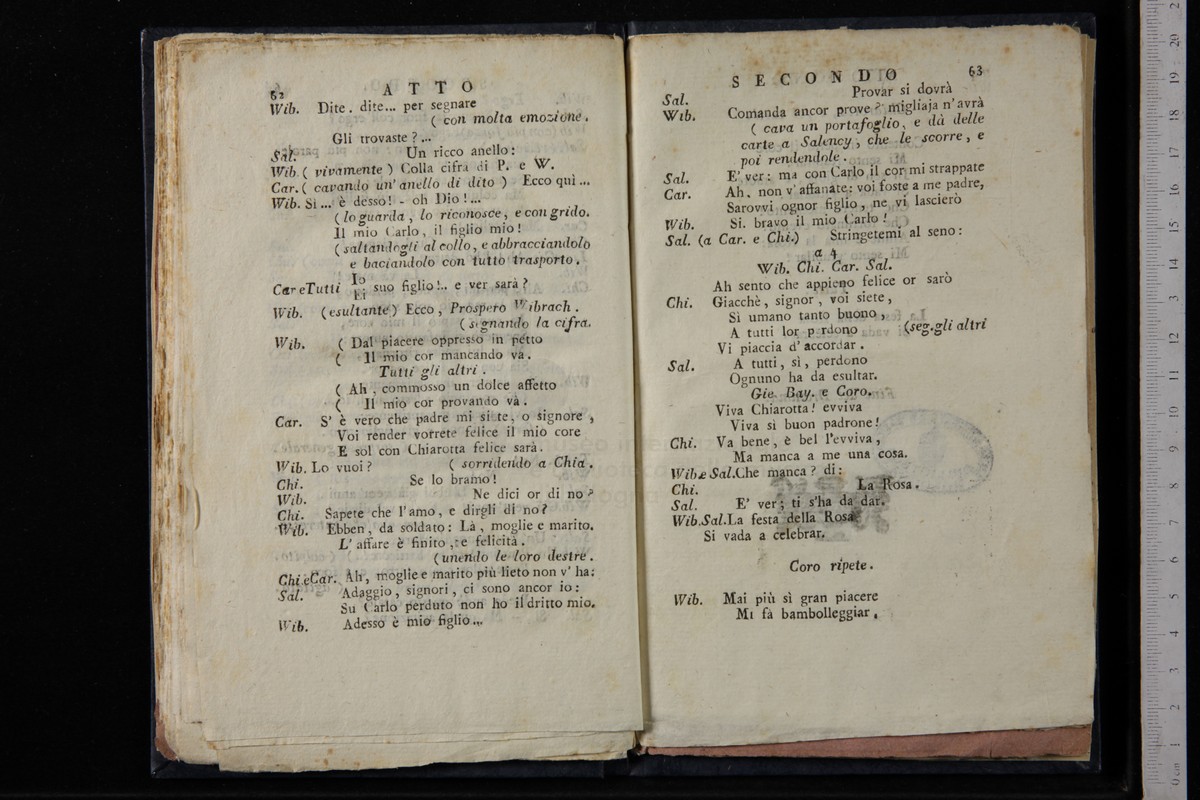 62
A T T O
Wib. Dite. dite... per segnare
( con molta emozione.
Gli trovaste ?...
Sal. Un ricco anello:
Wib. ( vivamente ) Colla cifra di P. e W.
Car. ( cavando un' anello di dito ) Ecco quì ...
Wib. Sì ... è desso! - oh Dio !...
( lo guarda , lo riconosce, e con grido.
Il mio Carlo, il figlio mio!
( saltandogli al collo, e abbracciandolo
e baciandolo con tutto trasporto.
Car e Tutti Io
Ei suo figlio!.. e ver sarà?
Wib. (esultante) Ecco, Prospero Wibrach.
( segnando la cifra.
Wib. ( Dal piacere oppresso in petto
( Il mio cor mancando và.
Tutti gli altri.
( Ah, commosso un dolce affetto
( Il mio cor provando và.
Car. S' è vero che padre mi siete, o signore,
Voi render vorrete felice il mio core
E sol con Chiarotta felice sarà.
Wib. Lo vuoi? ( sorridendo a Chia.
Chi. Se lo bramo!
Wib. Ne dici or di no?
Chi. Sapete che l'amo, e dirgli di no?
Wib. Ebben, da soldato: Là, moglie e marito.
L' affare è finito, e felicità.
(unendo le loro destre.
Chi e Car. Ah, moglie e marito più lieto non v' ha:
Sal. Adaggio, signori, ci sono ancor io:
Su Carlo perduto non ho il dritto mio.
Wib. Adesso è mio figlio...
S E C O N D O
63
Sal. Provar si dovrà
Wib. Comanda ancor prove? migliaja n'avrà
( cava un portafoglio, e dà delle
carte a Salency, che le scorre, e
poi rendendole.
Sal. E' ver: ma con Carlo il cor mi strappate
Car. Ah, non v' affanate: voi foste a me padre,
Sarovvi ognor figlio, ne vi lascierò
Wib. Sì. bravo il mio Carlo!
Sal. (a Car. e Chi.) Stringetemi al seno:
a 4
Wib. Chi. Car. Sal.
Ah sento che appieno felice or sarò
Chi. Giacchè, signor, voi siete,
Sì umano tanto buono,
A tutti lor perdono (seg. gli altri
Vi piaccia d' accordar.
Sal. A tutti, sì, perdono
Ognuno ha da esultar.
Gie. Bay. e Coro.
Viva Chiarotta! evviva
Viva sì buon padrone!
Chi. Va bene, è bel l'evviva,
Ma manca a me una cosa.
Wib. e Sal. Che manca? di:
Chi. La Rosa.
Sal. E' ver; ti s'ha da dar.
Wib. Sal. La festa della Rosa
Si vada a celebrar.
Coro ripete.
Wib. Mai più sì gran piacere
Mi fà bambolleggiar,